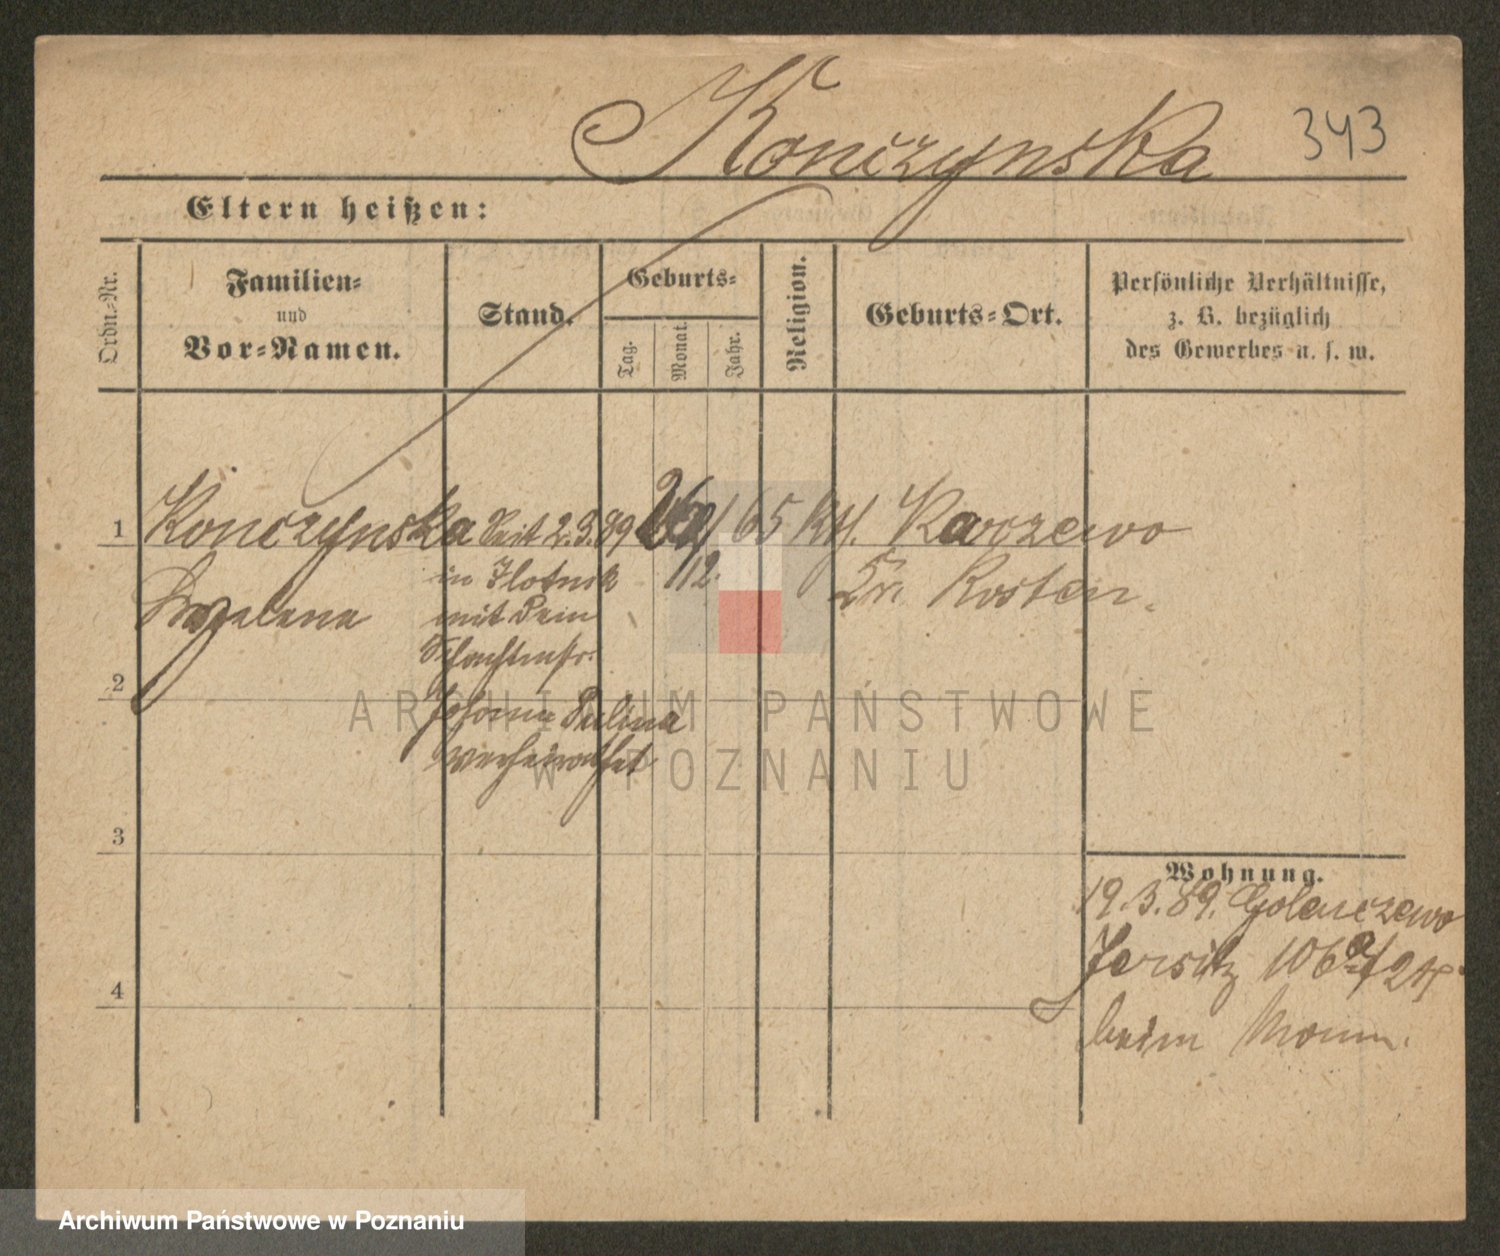 Konczynska 343
Eltern heißen:
Ordn.-Nr.
Familien-
und
Vor-Namen.
Stand.
Geburts-
Tag.
Monat.
Jahr.
Religion.
Geburts-Ort.
Persönliche Verhältnisse,
z. B. bezüglich
des Gewerbes u. s. w.
1 Konczynska seit 2.3.89 65 Kth. Karczewo
in Zlotnik 12. Kr. Kosten.
mit dem
2
Johann Pulina
verheirathet
3
Wohnung.
19.3.89. Golenczewo
Jersitz 106a/2
4
beim Mann.
ARCHIWUM PAŃSTWOWE
W POZNANIU
Archiwum Państwowe w Poznaniu